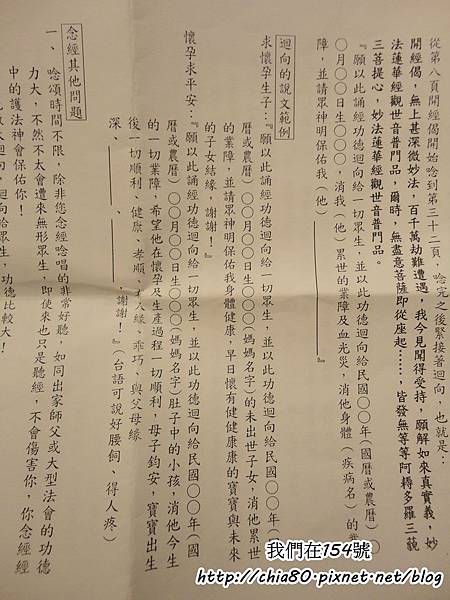 從第八頁開經偈開始唸到第三十二頁，唸完之後緊接著迴向，也就是：
開經偈，無上甚深微妙法，百千萬劫難遭遇，我今見聞得受持，願解如來真實義，妙
法蓮華經觀世音普門品，爾時，無盡意菩薩即從座起……，皆發無等等阿耨多羅三藐
三菩提心，妙法蓮華經觀世音普門品。
『願以此誦經功德迴向給一切眾生，並以此功德迴向給民國○○年(國曆或農曆)○
○月○○日生○○○，消我(他)累世的業障及血光災，消他身體(疾病名)的業
障，並請眾神明保佑我(他)
』
迴向的說文範例
求懷孕生子…『願以此誦經功德迴向給一切眾生，並以此功德迴向給民國○○年(國
曆或農曆)○○月○○日生○○○(媽媽名字)的未出世子女，消他累世
的業障，並請眾神明保佑我身體健康，早日懷有健健康康的寶寶與未來
的子女結緣，謝謝！』
懷孕求平安…『願以此誦經功德迴向給一切眾生，並以此功德迴向給民國○○年(國
曆或農曆)○○月○○日生○○○(媽媽名字)肚子中的小孩，消他今生
的一切業障，希望他在懷孕及生產過程一切順利，母子鈞安，寶寶出生
後一切順利、健康、孝順、有人緣、乖巧、與父母緣
深、、、謝謝！』(台語可說好腰飼、得人疼)
念經其他問題
一、唸頌時間不限，除非您念經唸唱的非常好聽，如同出家師父或大型法會的功德
力大，不然不太會遭來無形眾生，即使來也只是聽經，不會傷害你，你念經經
中的護法神會保佑你！
迴向給眾生，功德比較大！
我們在154號
http://chia80.pixnet.net/blog